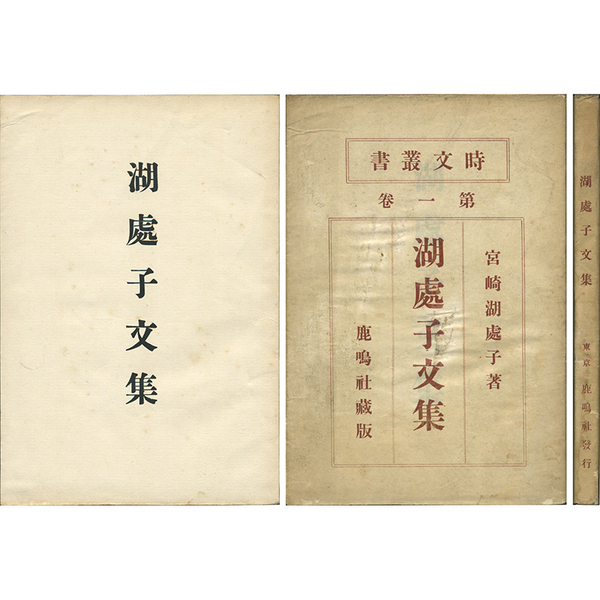 湖處子文集
時文叢書
第一卷
宮崎湖處子著
湖處子文集
鹿鳴社藏版
湖處子文集
東京 鹿鳴社發行